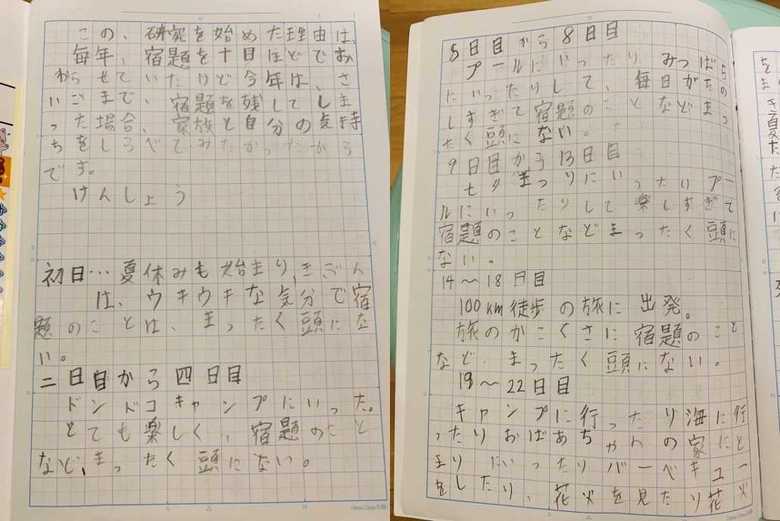 この、研究を始めた理由は、
毎年、宿題を十日ほどでお
わらせていたけど今年は、さ
いごまで、宿題を残してしま
った場合、家族と自分の気持
ちをしらべてみたかったから
です。
けんしょう
初日…夏休みも始まり、きごん
は、ウキウキな気分で宿
題のことは、まったく頭にな
い。
二日目から四日目
ドンドコキャンプにいった。
とても楽しく、宿題のこと
など、まったく頭にない。
5日目から8日目
プールにいったり、みつばち
にいったりして、毎日がたの
しすぎて宿題のことなどまっ
たく頭にない。
9日目から13日目
七夕まつりにいったりプー
ルにいったりして楽しすぎて
宿題のことなどまったく頭に
ない。
14〜18日目
100km徒歩の旅に出発。
旅のかこくさに宿題のこと
など、まったく頭にない。
19〜22日目
キャンプに行ったり海に行
ったりおばあちゃんの家にと
まりにいったりバーベキュー
をしたり、花火を見たり花火